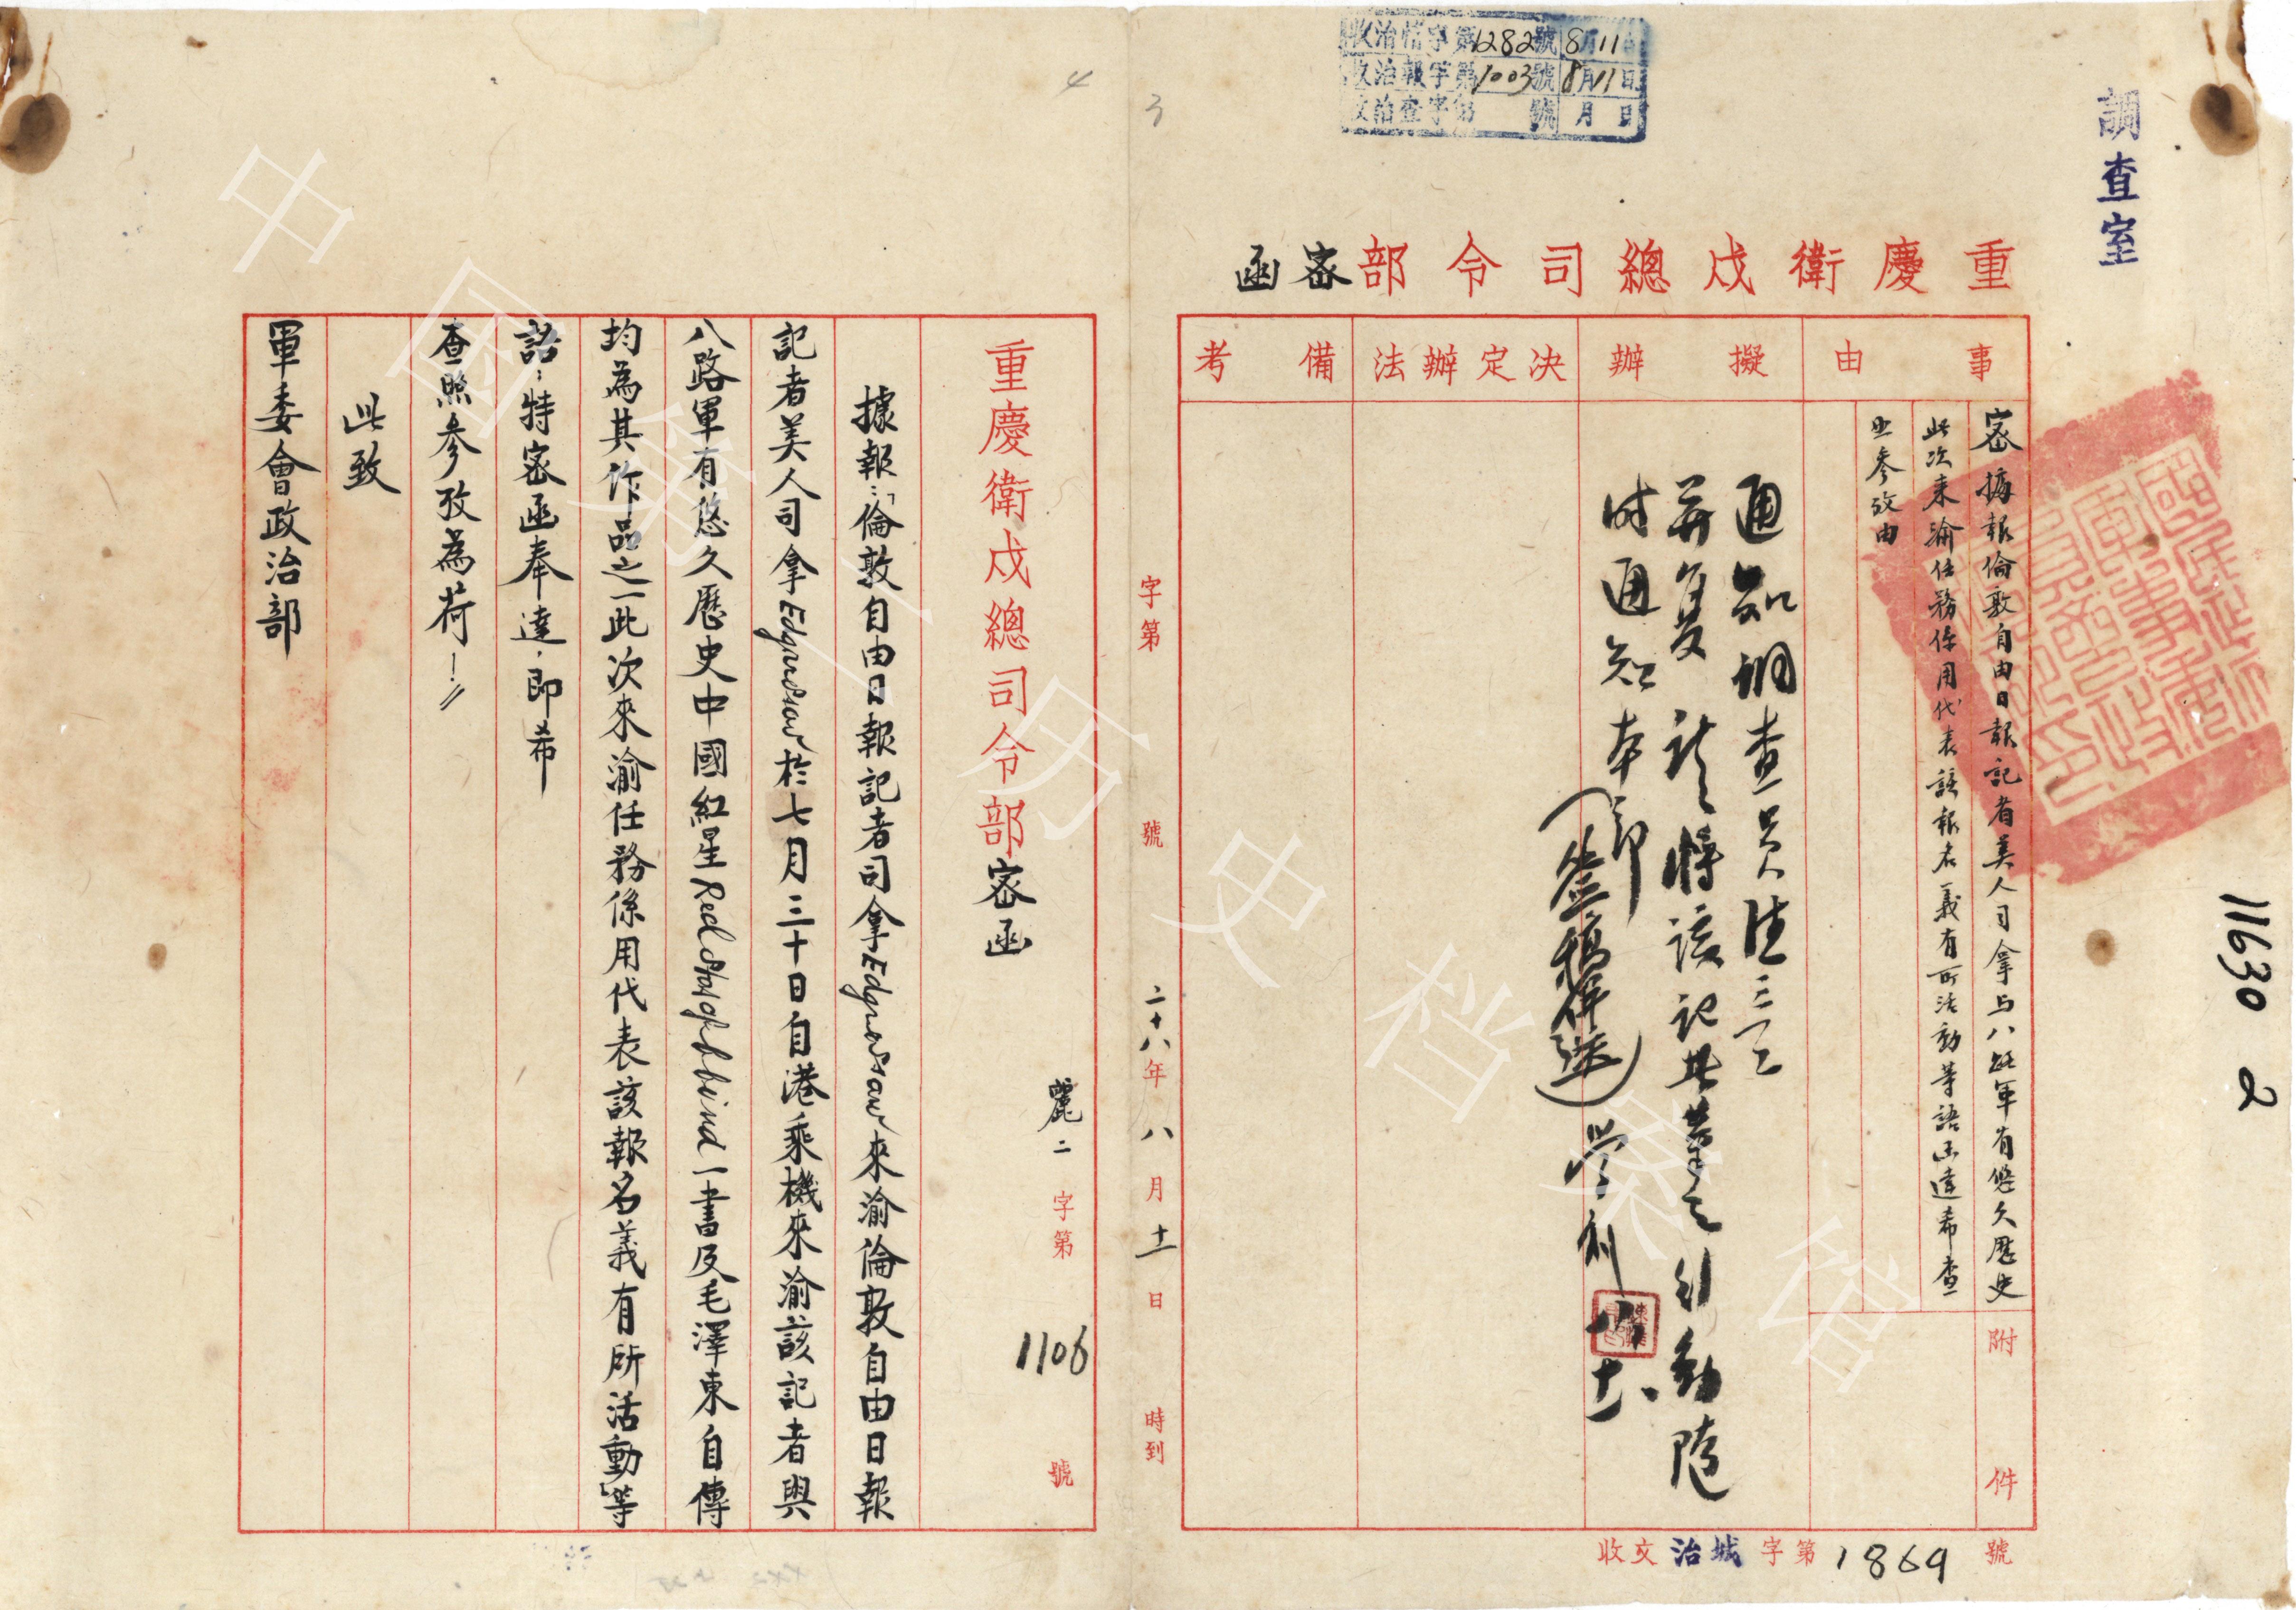 收治情字第1282號8月11日
收治報字第1003號8月11日
收治查字第 號 月 日
調查室
重慶衛戍總司令部密函
事由
擬辦
決定辦法
備考
密 據報倫敦自由日報記者美人司拿与八路軍有悠久歷史
此次来渝任務係用代表該報名義有所活動等語函達希查
照參攷由
通知調查員
并复 請將該記者等之行動隨
时通知本部
附件
收文治城字第1869號
11630
2
3
4
字第 號 二十八年八月十一日 時到
重慶衛戍總司令部密函
麗二字第1106號
據報：「倫敦自由日報記者司拿Edgarsnow來渝倫敦自由日報
記者美人司拿Edgarsnow於七月三十日自港乘機來渝該記者與
八路軍有悠久歷史中國紅星Red Star of China一書及毛澤東自傳
均為其作品之一此次來渝任務係用代表該報名義有所活動」等
語；特密函奉達，即希
查照參攷為荷！〃
此致
軍委會政治部
中国第二历史档案馆